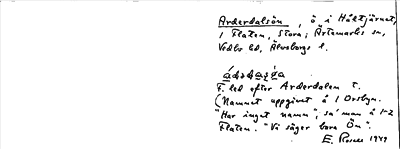 Arderdalsön, ö i Håltjärnet,
1 Flaten, Stora; Ärtemarks sn,
Vedbo hd, Älvsborgs l.
F. led efter Arderdalen t.
(Namnet uppgivet å 1 Orsbyn.
"Har inget namn", sa' man å 1-2
Flaten. "Vi säger bara Ön".
E. Rosell 1949